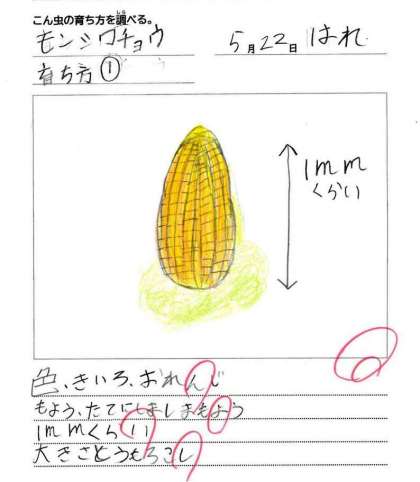 こん虫の育ち方を調べる。
モンシロチョウ
5月22日 はれ
育ち方①
1mm
くらい
色、きいろ、おれんじ
もよう、たてにしましまもよう
1mmくらい
大きさとうもろこし